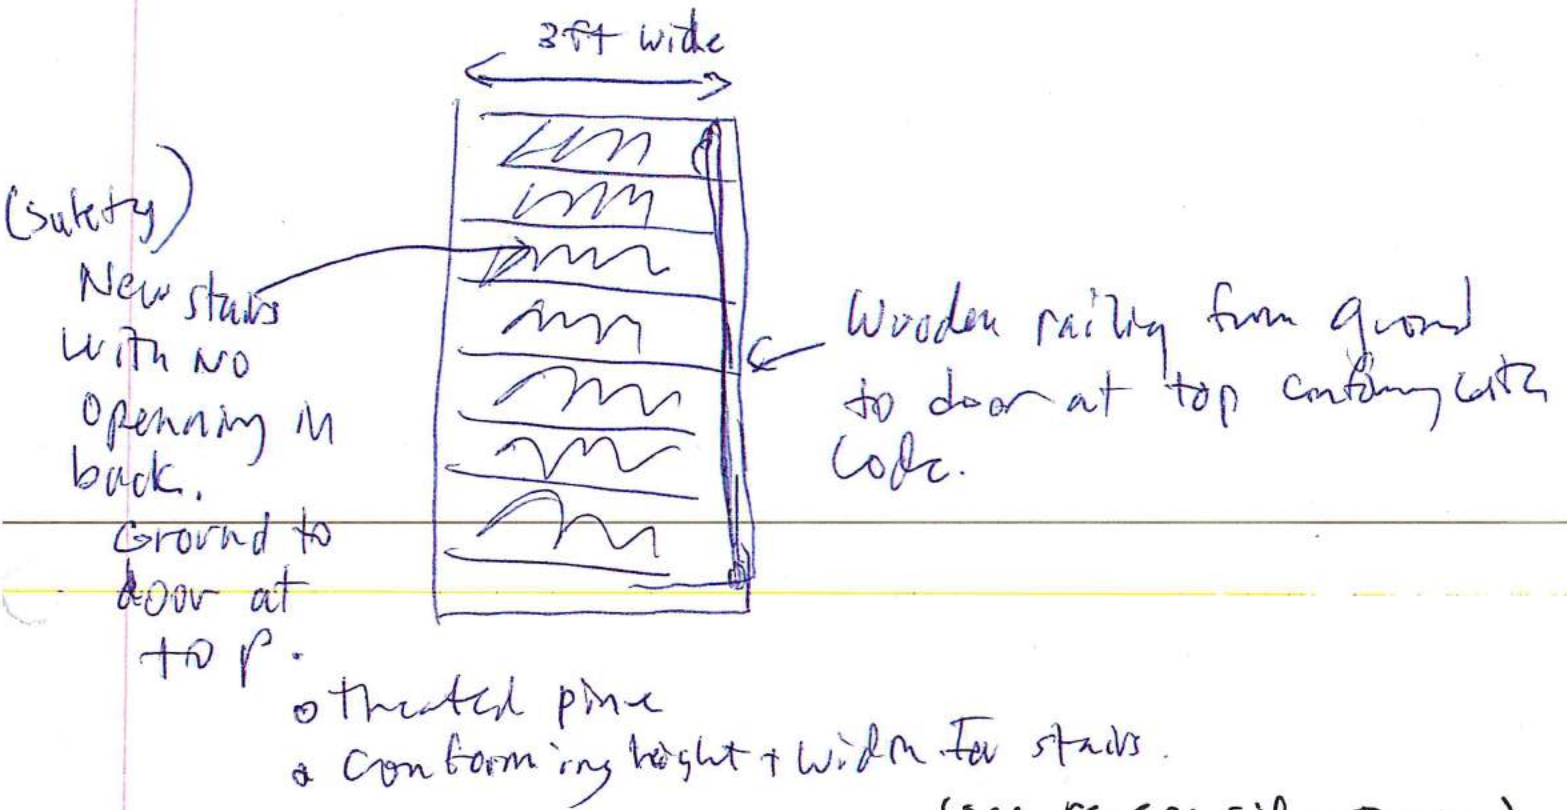 3ft wide
(Safety)
New stairs
with NO
openning in
back.
Ground to
door at
top.
Wooden railing from ground
to door at top conforming with
Code.
o treated pine
o conforming height + width for stairs.